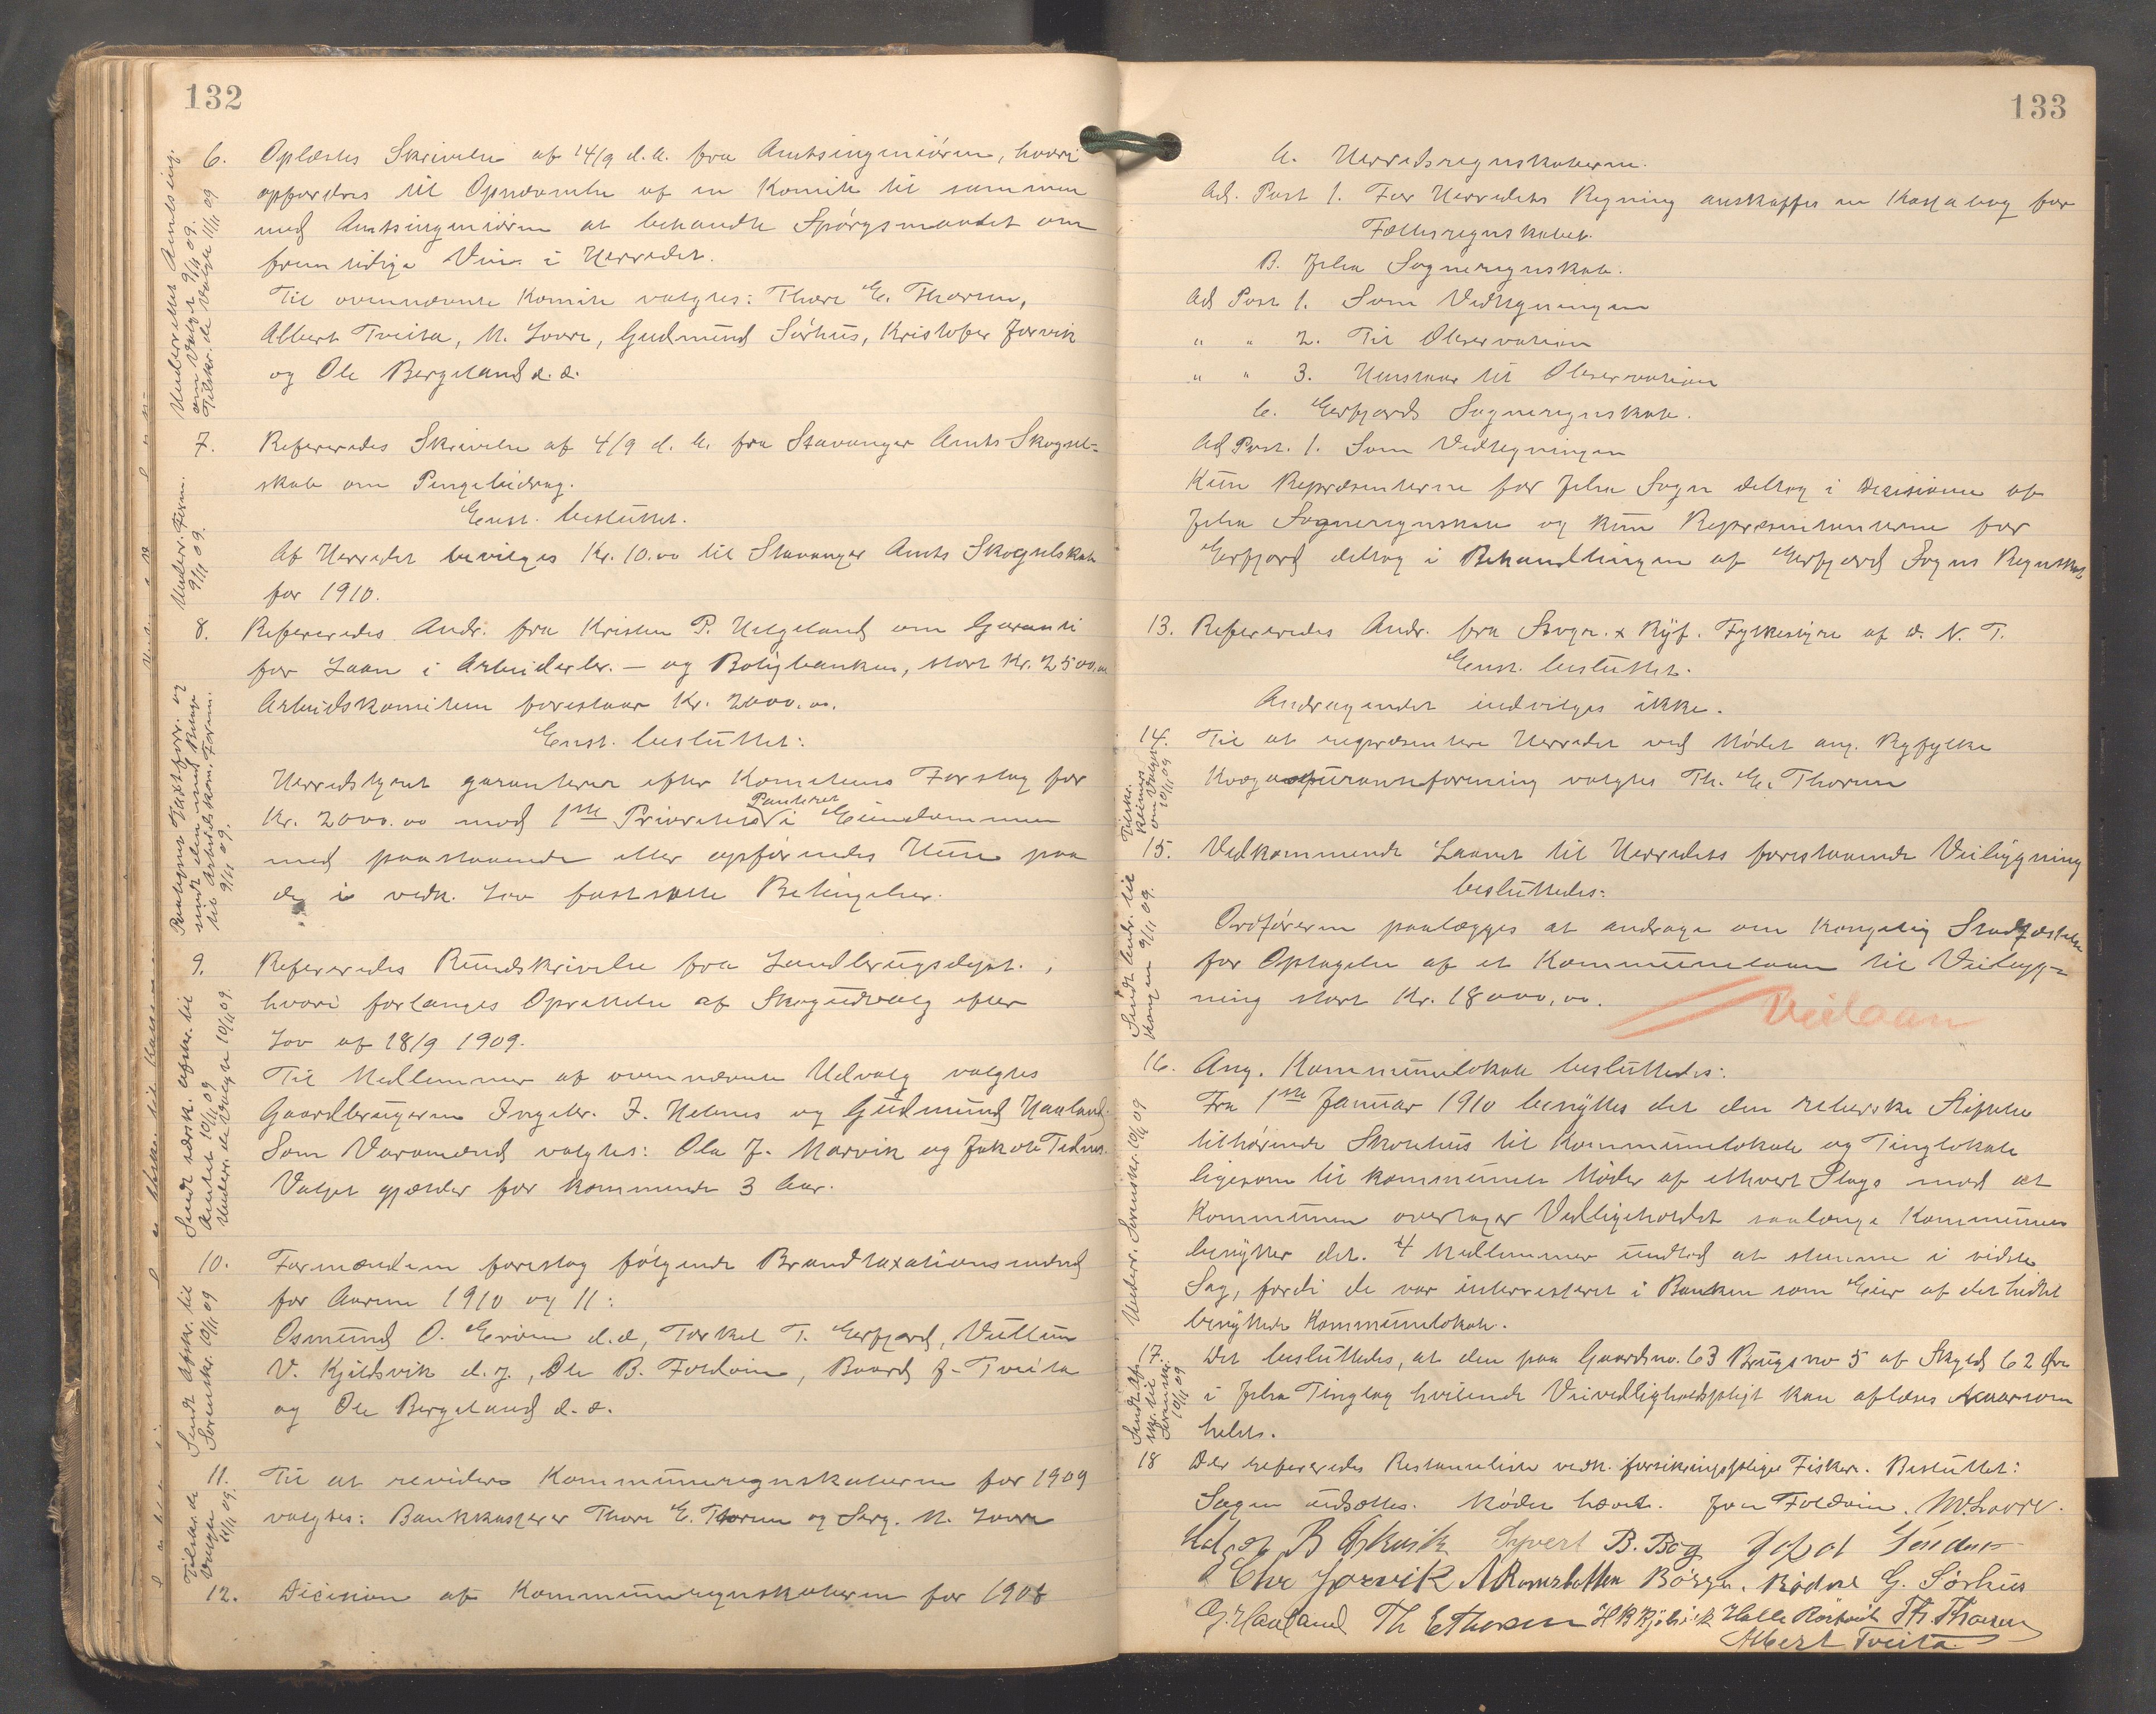 132
6. Oplæstes Skrivelse af 14/9 d. A. fra Amtsingeniøren, hvori
opfordres til Opnævnelse af en Komite til sammen
med Amtsingeniøren at behandle Spørgsmaalet om
fremtidige Veie i Herredet.
Til ovennævnte Komite valgtes: Thore E. Thorsen,
Albert Tveita, M. Lovre, Gudmund Sørhus, Kristofer Jorvik
og Ole Bergeland d. æ.
Underrettet Amtsing.
om Valget 9/11 09.
Tilskr. de Valgte 11/11 09
7. Refereredes Skrivelse af 4/9 d. A. fra Stavanger Amts Skogsel=
skab om Pengebidrag.
Enst. besluttet.
Af Herredet bevilges Kr. 10.00 til Stavanger Amts Skogselskab
for 1910.
Underr. Form.
9/11 09.
8. Refereredes Andr. fra Kristen P. Helgeland om Garanti
for Laan i Arbeiderbr. – og Boligbanken, stort Kr. 2500.00
Arbeidskomiteen foreslaar Kr. 2000.00.
Enst. besluttet:
Herredstyret garanterer efter Komiteens Forslag for
Panteret
Kr. 2000.00 mod 1ste Prioritets i Eiendommen
med paastaaende eller opførendes Huse paa
de i vedk. Lov fastsatte Betingelser.
Paategnet Gjøtsforr. og
sendt den med Bilage
til Arbeidskom. Form.
9/11 09.
9. Refereredes Rundskrivelse fra Landbrugsdept.,
hvori forlanges Oprettelse af Skogudvalg efter
Lov af 18/9 1909.
Til Medlemmer af ovennævnte Udvalg valgtes
Gaardbrugerne Ingebr. J. Helnes og Gudmund Hauland.
Som Varamænd valgtes: Ola J. Marvik og Jakob Tednes.
Valget gjælder for kommende 3 Aar.
Sendt særsk. afskr. til
Amtet 10/11 09
Underr. de Valgte 10/11 09.
10. Formændene foreslog følgende Brandtaxationsmænd
for Aarene 1910 og 11:
Osmund O. Eroien d.æ, Torkel T. Erfjord, Vullum
V. Kjildsvik d.y., Ole B. Foldøen, Baard J. Tveita
og Ole Bergeland d. æ.
Sendt Afskr. til
Sorenskr. 10/11 09
11. Til at revidere Kommuneregnskaberne for 1909
valgtes: Bankkasserer Thore E. Thorsen og Serg. M. Lovre
Tilskr. de
Valgte
11/11 09.
12. Decision af Kommuneregnskaberne for 1908
133
A. Herredsregnskaberne.
Ad. Post 1. For Herredets Regning anskaffes en Kassabog for
Fællesregnskabet.
B. Jelsa Sogneregnskab.
Ad Post 1. Som Vedtegningen
" " 2. Til Observation
" " 3. Henstaar til Observation
C. Erfjords Sogneregnskab.
Ad Post. 1. Som Vedtegningen
Kun Repræsenterne for Jelsa Sogn deltog i Decisionen af
Jelsa Sogneregnskab og kun Repræsentanterne for
Erfjord deltog i Behandlingen af Erfjord Sogns Regnskab
13. Refereredes Andr. fra Stvgr. & Ryf. Fylkestyre af D. N. T.
Enst. besluttet.
Andragendet indvilges ikke.
14. Til at repræsentere Herredet ved Mødet ang. Ryfylke
Kvægassuranseforening valgtes Th. E. Thorsen
10/11 09
15. Vedkommende Laanet til Herredets forestaaende Veibygning
besluttedes:
Ordføreren paalægges at andrage om Kongelig Stadfæstelse
for Optagelse af et Kommunelaan til Veibyg=
ning stort Kr. 18000,00.
Veilaan
Sendt Andr. til
Kongen 9/11 09.
16. Ang. Kommunelokale besluttedes:
Fra 1ste Januar 1910 benyttes det den reberske Stiftelse
tilhørende Skolehus til Kommunelokale og Tinglokale
ligesom til kommunale Møder af ethvert Slags mod at
Kommunen overtager Vedligeholdet saalænge Kommunen
benytter det. 4 Medlemmer undlod at stemme i sidste
Sag, fordi de var interresseret i Banken som Eier af det hidtil
benyttede Kommunelokale.
Underr. Sorenskr. 10/11 09
17. Det besluttedes, at den paa Gaardsno. 63 Brugsno 5 af Skyld 62 Øre
i Jelsa Tinglag hvilende Veivedligholdspligt kan afløses naarsom
helst.
Sendt Af-
skr. til
Sorenskr.
10/11 09
18 Der refereredes Restanseliste vedk. forsikringspligtige Fiskere. Besluttet:
Sagen udsættes. Mødet hævet. Jon Foldøen. M. Lovre.
B Askvik Syvert B. Bog
Chr Jorvik A Ramsbotten G. Sørhus
G. Hauland Th E Thorsen Th. Thorsen
Albert Tveita